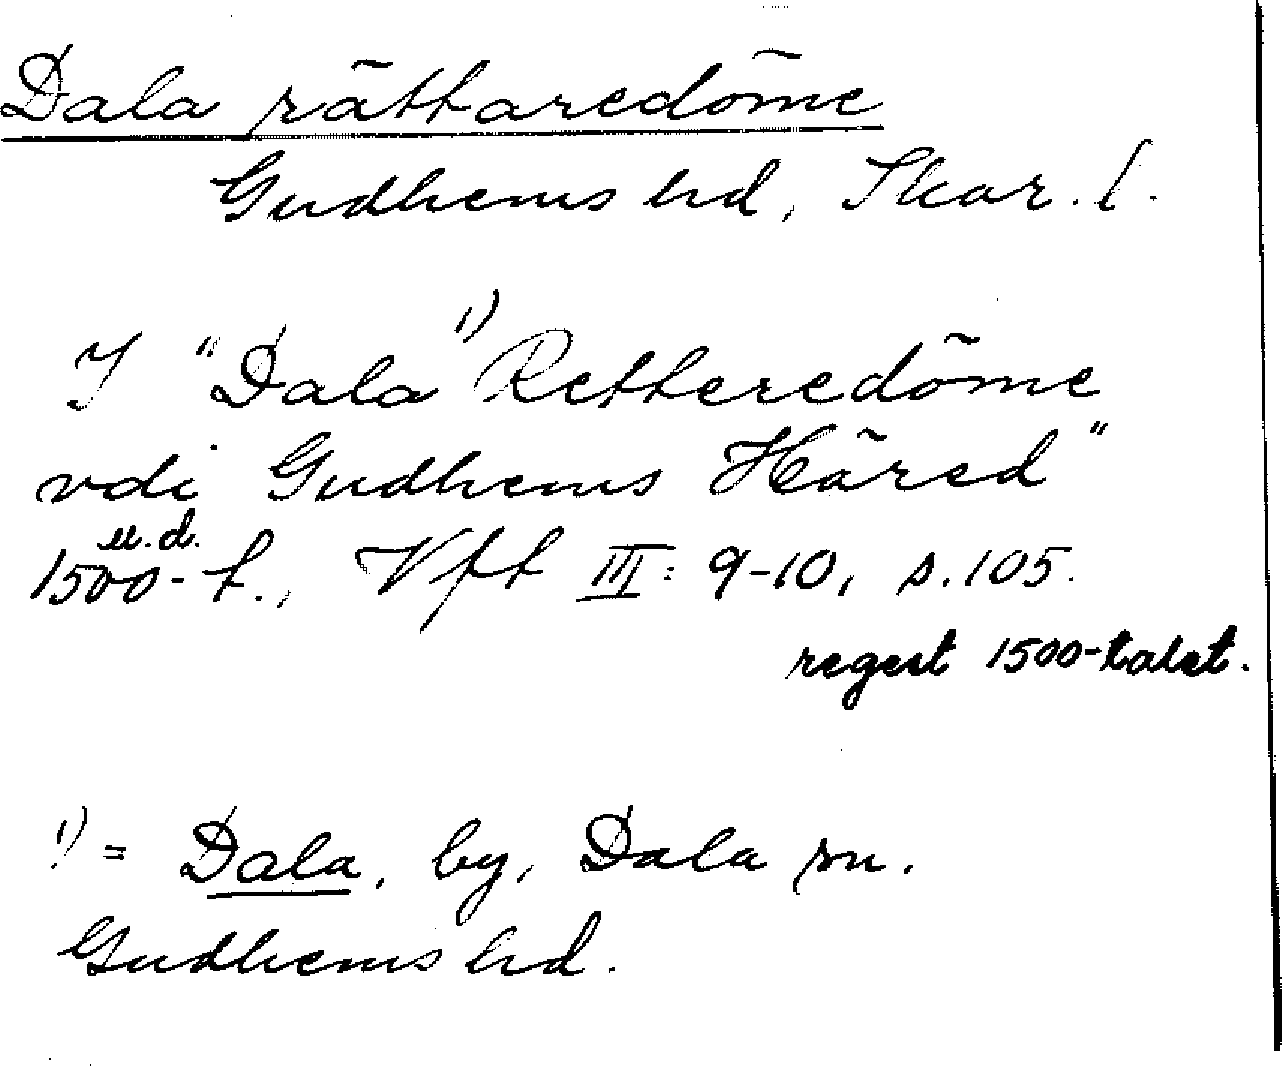 Dala rättaredöme
Gudhems hd, Skar. l.
I "Dala ¹⁾ Retteredöme
vdi Gudhems Häred"
u.d.
1500-t., Vft III: 9-10, s. 105.
regest 1500-talet.
¹⁾ = Dala, by, Dala sn.
Gudhems hd.